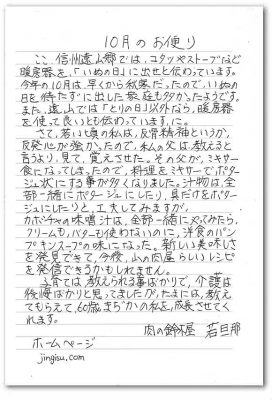 10月のお便り
ここ、信州遠山郷では、コタツやストーブなど
暖房器を、「いぬの日」に出せと伝わっています。
今年の10月は、早くから秋寒だったので、いぬの
日を待たずに出した家庭も多かったようです。
また、遠山では「とりの日」以外なら、暖房器
を使って良いとも伝わっています。に。
さて、若い頃の私は、反骨精神というか、
反発心が強かったので、私の父は、教えると
言うより、見て、覚えさせた。その父が、ミキサー
食になってしまったので、料理をミキサーでポター
ジュ状にする事が多くなりました。汁物は、全
部一緒にポタージュにしたり、具だけをポター
ジュにしたりと、工夫してみますが、
カボチャの味噌汁は、全部一緒にやってみたら、
クリームも、バターも使わないのに、洋食のパン
プキンスープの味になった。新しい美味しさ
を発見できて、今後、山の肉屋らしいレシピ
を発信できるかもしれません。
子育ては、教えられる事ばかりで、介護は
後悔ばかりと思ってましたが、たまには、教え
てもらえて、60歳まぢかの私を、成長させてく
れます。
肉の鈴木屋 若旦那
ホームページ
jingisu.com